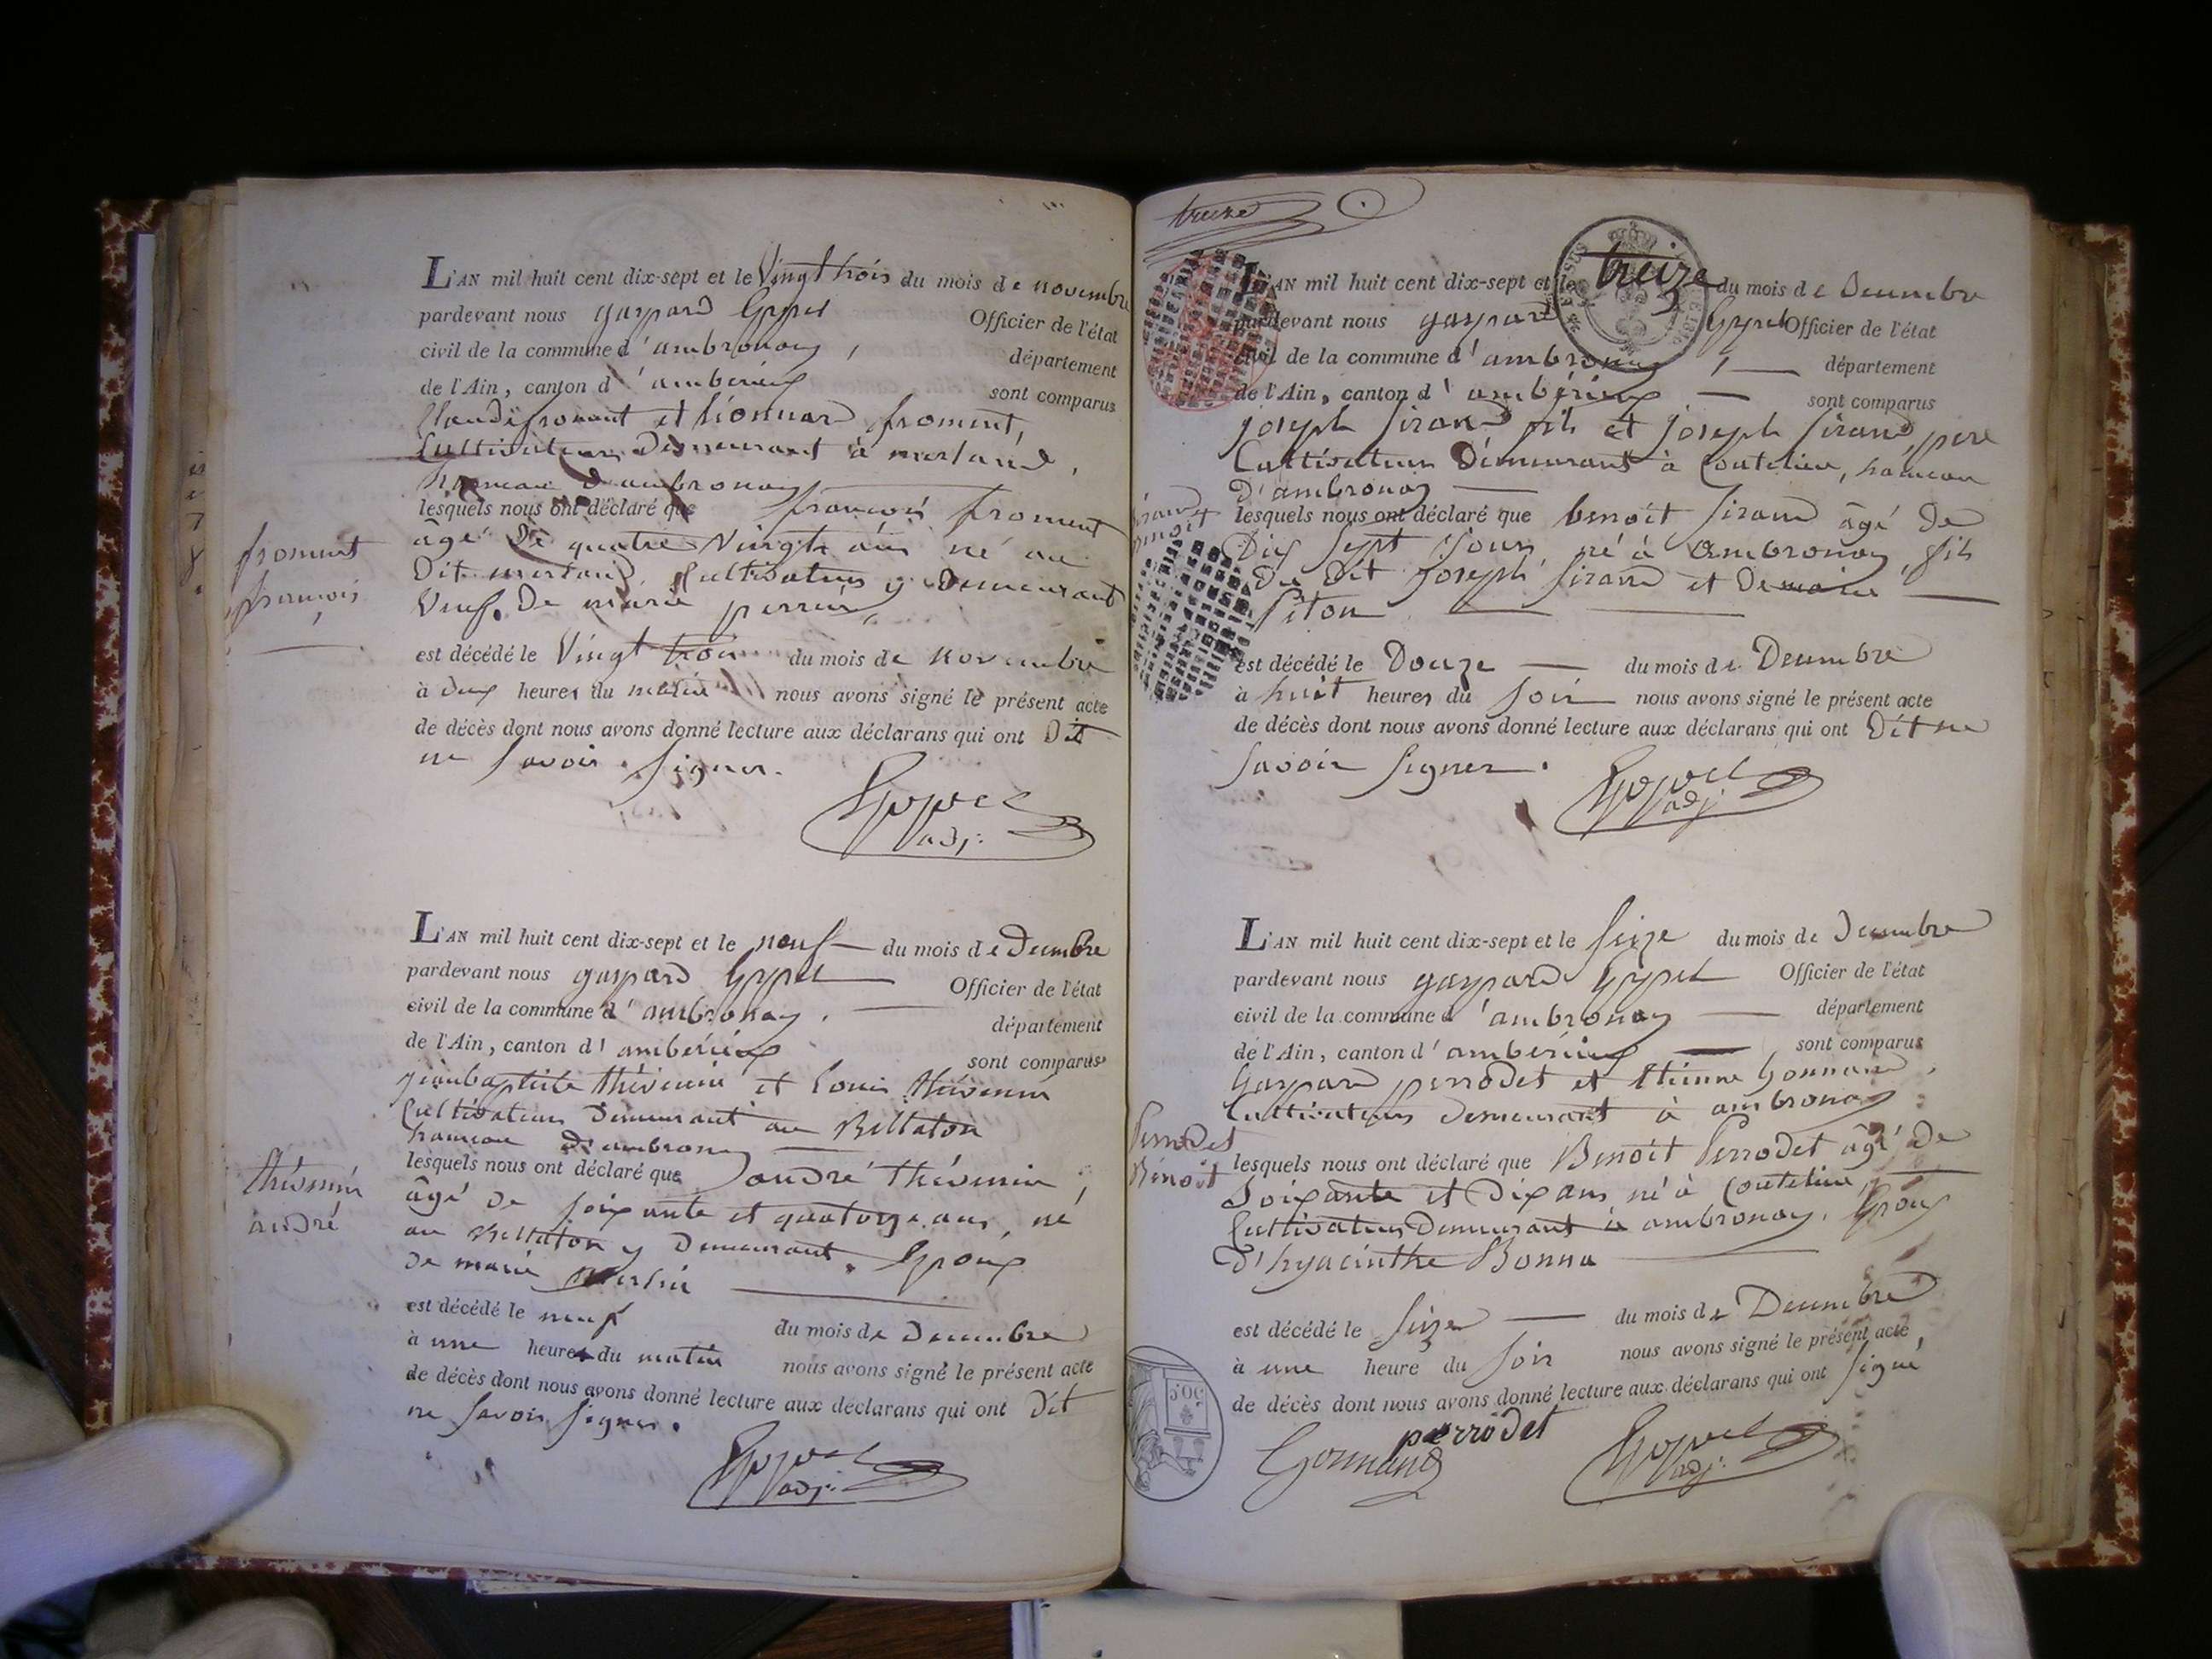 L'AN mil huit cent dix-sept et le Vingt trois du mois de novembre
pardevant nous gaspard Officier de l'état
civil de la commune d'ambronay, département
de l'Ain, canton d'ambérieux sont comparus
Claude froment et Lionnard froment,
Cultivateurs Demeurant à merland,
hameau d'ambronay
lesquels nous ont déclaré que françois froment
âgé de quatre Vingts ans né au
Dit merland, Cultivateur y Demeurant
Veuf De marie perrin,
froment
françois
est décédé le Vingt trois du mois de novembre
à deux heures du matin nous avons signé le présent acte
de décès dont nous avons donné lecture aux déclarans qui ont Dit
ne savoir signer.
adj.
L'AN mil huit cent dix-sept et le neuf du mois de Decembre
pardevant nous gaspard Officier de l'état
civil de la commune d'ambronay. département
de l'Ain, canton d'ambérieux sont comparus
jeanbaptiste thévenin et Louis thévenin
Cultivateurs Demeurant au Bellaton
hameau d'ambronay
lesquels nous ont déclaré que andré thévenin,
âgé de soixante et quatorze ans, né
au Bellaton y Demeurant. Epoux
de marie
thévenin
andré
est décédé le neuf du mois de Decembre
à une heure du matin nous avons signé le présent acte
de décès dont nous avons donné lecture aux déclarans qui ont Dit
ne savoir signer.
adj.
treize
L'AN mil huit cent dix-sept et le treize du mois de Decembre
pardevant nous gaspard Officier de l'état
civil de la commune d'ambronay, département
de l'Ain, canton d'ambérieux sont comparus
joseph Sirand fils et joseph Sirand père
Cultivateurs Demeurant à Coutelieu, hameau
D'ambronay
lesquels nous ont déclaré que benoit Sirand âgé De
Dix Sept jours, né à ambronay, fils
Du Dit joseph Sirand et De marie
Piton
est décédé le Douze du mois de Decembre
à huit heures du soir nous avons signé le présent acte
de décès dont nous avons donné lecture aux déclarans qui ont Dit ne
savoir signer.
adj.
L'AN mil huit cent dix-sept et le seize du mois de Decembre
pardevant nous gaspard Officier de l'état
civil de la commune d'ambronay département
de l'Ain, canton d'ambérieux sont comparus
Gaspard perrodet et Etienne Gonnand,
Cultivateurs Demeurant à ambronay
Perrodet
Benoit
lesquels nous ont déclaré que Benoit Perrodet âgé de
Soixante et Dix ans, né à Coutelieu,
Cultivateur Demeurant à ambronay, Epoux
D'hyacinthe Bonna
est décédé le seize du mois de Decembre
à une heure du soir nous avons signé le présent acte
de décès dont nous avons donné lecture aux déclarans qui ont signé,
perrodet
Gonnand
adj.